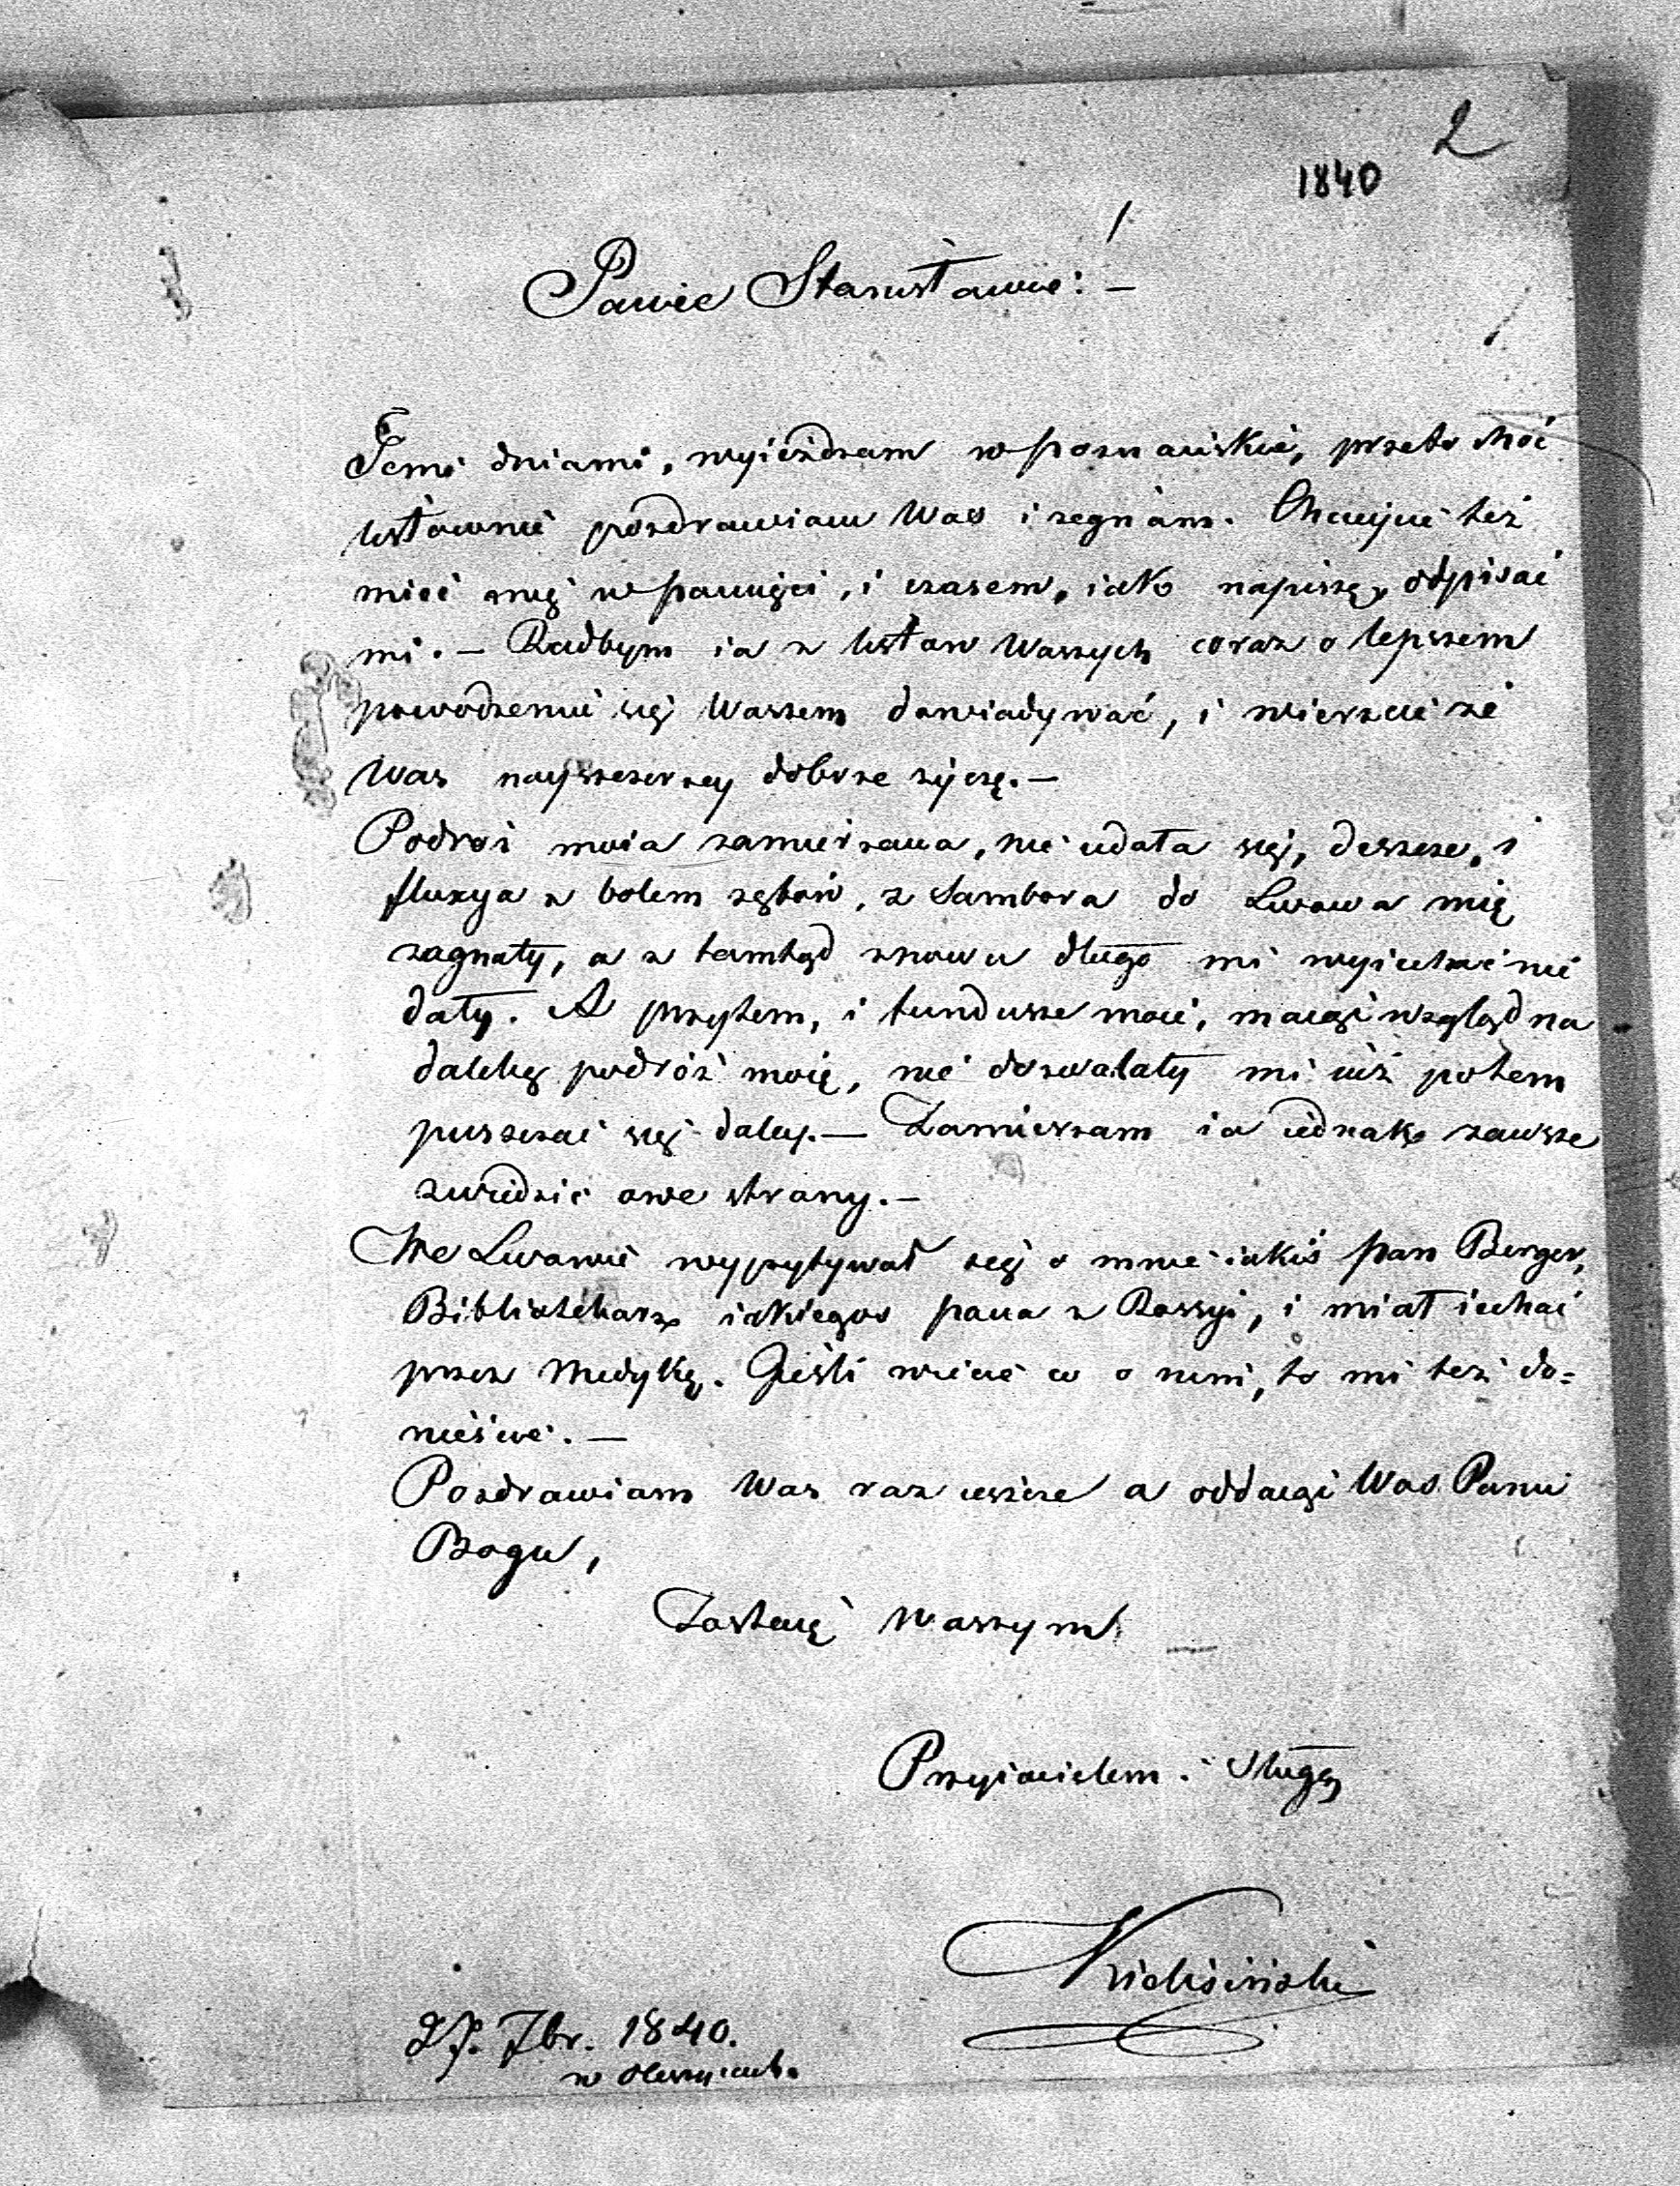 2
1840
Panie Stanisławie! –
Temi dniami, wyieżdzam w poznańskie, przeto choć
listownie pozdrawiam Was i zegnam. Chcieycie też
mieć mię w pamięci, i czasem, iako napiszę, odpisać
mi. – Radbym ia z listow Waszych coraz o lepszem
powodzeniu się Waszem dowiadywać, i wierzcie że
Was nayszczerzey dobrze zyczę. –
Podroż moia zamierzana, nie udała się, deszcze, i
fluxya z bolem zębów, z Sambora do Lwowa mię
zagnały, a z tamtąd znowu długo mi wyiechać nie
dały. A przytem, i fundusze moie, maiąc wzgląd na
daleką podróż moię, nie dozwalały mi iuż potem
puszczać się daley. – Zamierzam ia iednak zawsze
zwiedzić owe strony. –
We Lwowie wypytywał się o mnie iakiś pan Berger,
Bibliotekarz iakiegoś pana z Rossyi, i miał iechać
przez Medykę. Jeśli wiecie co o nim, to mi też do=
nieście. –
Pozdrawiam Was raz ieszcze a oddaiąc Was Panu
Bogu,
Zostaię Waszym
Przyiacielem i Sługą
Kielisiński
27. 7br. 1840.
w Oleszycach.